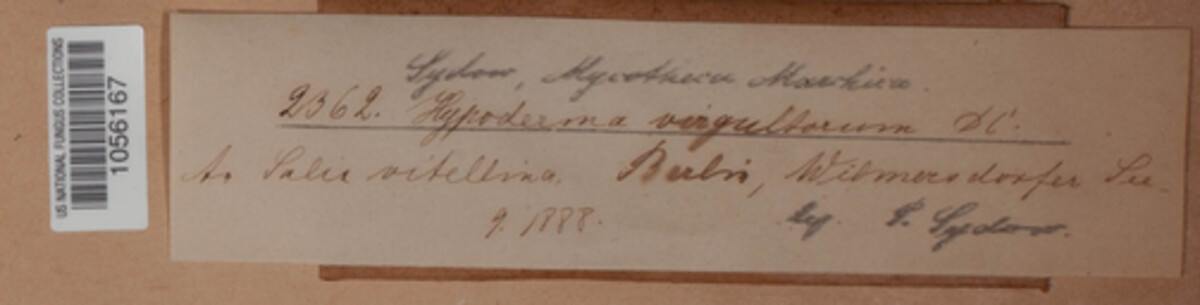 US NATIONAL FUNGUS COLLECTIONS
1056167
Sydow, Mycotheca Marchica.
2362. Hypoderma virgultorum DC.
A. Salix vitellina. Berlin, Wilmersdorfer See
9. 1888.
leg. P. Sydow.